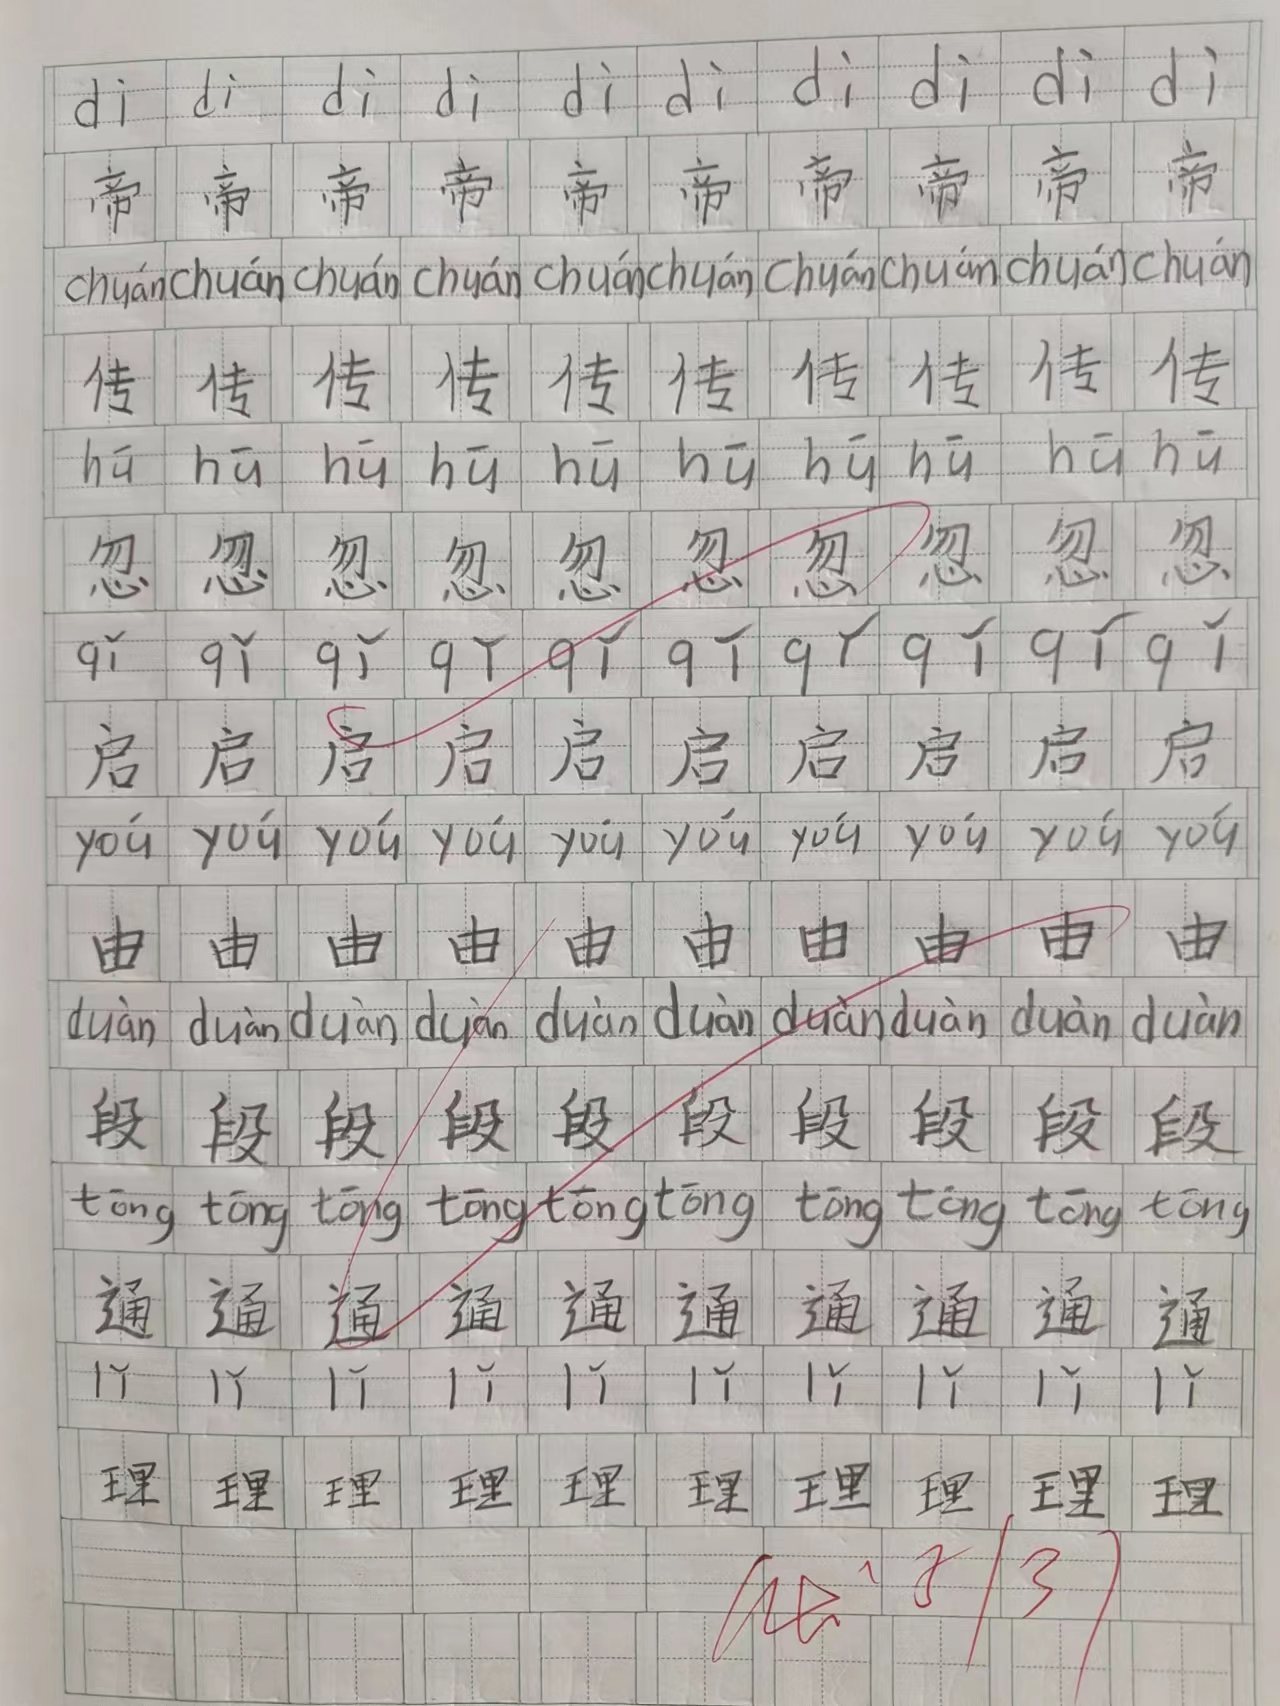 dì dì dì dì dì dì dì dì dì dì
帝 帝 帝 帝 帝 帝 帝 帝 帝 帝
chuán chuán chuán chuán chuán chuán chuán chuán chuán chuán
传 传 传 传 传 传 传 传 传 传
hū hū hū hū hū hū hū hū hū hū
忽 忽 忽 忽 忽 忽 忽 忽 忽 忽
qǐ qǐ qǐ qǐ qǐ qǐ qǐ qǐ qǐ qǐ
启 启 启 启 启 启 启 启 启 启
yóu yóu yóu yóu yóu yóu yóu yóu yóu yóu
由 由 由 由 由 由 由 由 由 由
duàn duàn duàn duàn duàn duàn duàn duàn duàn duàn
段 段 段 段 段 段 段 段 段 段
tōng tōng tōng tōng tōng tōng tōng tōng tōng tōng
通 通 通 通 通 通 通 通 通 通
lǐ lǐ lǐ lǐ lǐ lǐ lǐ lǐ lǐ lǐ
理 理 理 理 理 理 理 理 理 理